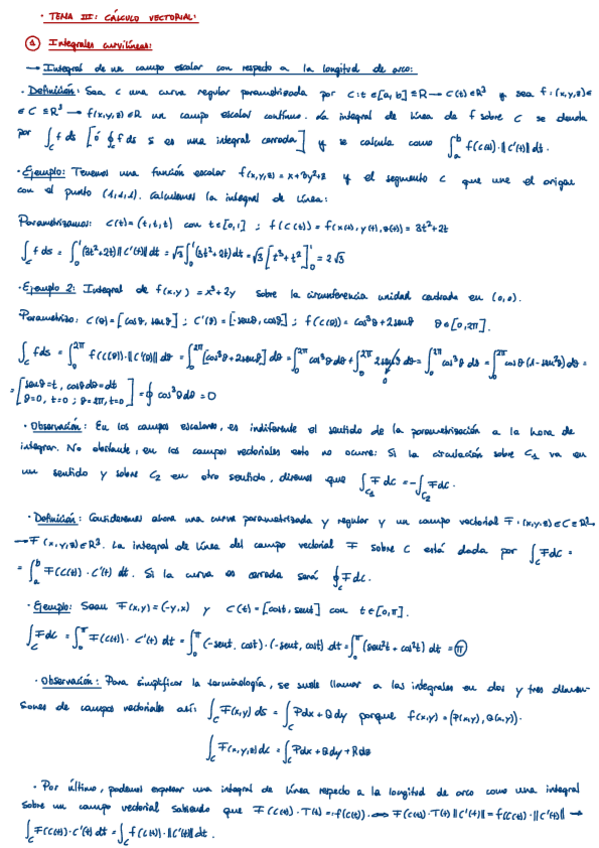 · TEMA III: CÁLCULO VECTORIAL:
① Integrales curvilíneas:
→ Integral de un campo escalar con respecto a la longitud de arco:
· Definición: Sea C una curva regular parametrizada por C: t∈[a,b]⊆R → C(t)∈R³ y sea f: (x,y,z)∈
∈ C ⊆R³ → f(x,y,z)∈R un campo escalar continuo. La integral de línea de f sobre C se denota
por ∫_C f ds [ó ∮ f ds si es una integral cerrada] y se calcula como ∫_a^b f(c(t))·||C'(t)|| dt.
· Ejemplo: Tenemos una función escalar f(x,y,z)=x+3y²+z y el segmento C que une el origen
con el punto (1,1,1). Calculemos la integral de línea:
Parametrizamos: C(t)=(t,t,t) con t∈[0,1] ; f(C(t))=f(x(t),y(t),z(t))=3t²+2t
∫_C f ds = ∫_0^1 (3t²+2t)||C'(t)||dt = √3∫_0^1 (3t²+2t)dt = √3[t³+t²]_0^1 = 2√3
· Ejemplo 2: Integral de f(x,y)=x³+2y sobre la circunferencia unidad centrada en (0,0).
Parametrizo: C(θ)=[cosθ, senθ] ; C'(θ)=[-senθ, cosθ] ; f(C(θ))=cos³θ+2senθ θ∈[0,2π].
∫_C f ds = ∫_0^{2π} f(C(θ))·||C'(θ)|| dθ = ∫_0^{2π} [cos³θ+2senθ] dθ = ∫_0^{2π} cos³θ dθ + ∫_0^{2π} 2senθ dθ = ∫_0^{2π} cos³θ dθ = ∫_0^{2π} cosθ(1-sen²θ)dθ =
= [senθ=t, cosθdθ=dt θ=0, t=0 ; θ=2π, t=0] = ∮ cos³θ dθ = 0
· Observación: En los campos escalares, es indiferente el sentido de la parametrización a la hora de
integrar. No obstante, en los campos vectoriales esto no ocurre: Si la circulación sobre C₁ va en
un sentido y sobre C₂ en otro sentido, diremos que ∫_{C₁} F dc = -∫_{C₂} F dc.
· Definición: Consideremos ahora una curva parametrizada y regular y un campo vectorial F: (x,y,z)∈C⊆R³
→ F(x,y,z)∈R³. La integral de línea del campo vectorial F sobre C está dada por ∫_C F dc =
= ∫_a^b F(C(t))·C'(t) dt. Si la curva es cerrada será ∮_C F dc.
· Ejemplo: Sean F(x,y)=(-y,x) y C(t)=[cost, sent] con t∈[0,π].
∫_C F dc = ∫_0^π F(C(t))·C'(t) dt = ∫_0^π (-sent, cost)·(-sent, cost) dt = ∫_0^π (sen²t + cos²t) dt = π
· Observación: Para simplificar la terminología, se suele llamar a las integrales en dos y tres dimen-
siones de campos vectoriales así: ∫_C F(x,y) ds = ∫_C Pdx + Qdy porque f(x,y)=(P(x,y), Q(x,y)).
∫_C F(x,y,z)dc = ∫_C Pdx + Qdy + Rdz
· Por último, podemos expresar una integral de línea respecto a la longitud de arco como una integral
sobre un campo vectorial sabiendo que F(C(t))·T(t)=f(C(t)) ⇒ F(C(t))·T(t)||C'(t)|| = f(C(t))·||C'(t)|| →
∫_C F(C(t))·C'(t) dt = ∫_C f(C(t))·||C'(t)|| dt.